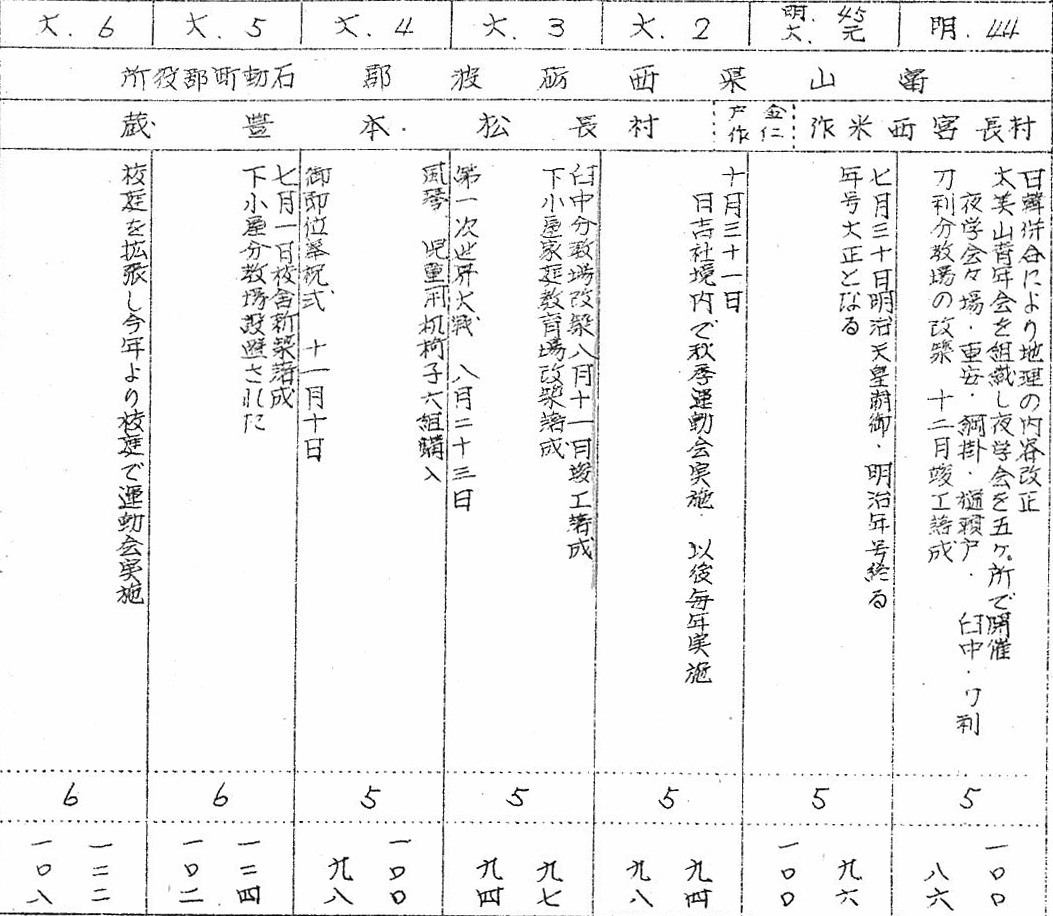 明.44
明.45
大.元
大.2
大.3
大.4
大.5
大.6
富山県西砺波郡 石動町郡役所
村長宮西米作
金仁
戸作
村長 松本豊蔵
日韓併合により地理の内容改正
太美山青年会を組織し夜学会を五ヶ所で開催
夜学会々場・重安・綱掛・樋瀬戸・臼中・刀利
刀利分教場の改築 十二月竣工落成
七月三十日明治天皇崩御・明治年号終る
年号大正となる
十月三十一日
日吉社境内で秋季運動会実施 以後毎年実施
臼中分教場改築八月十一日竣工落成
下小屋家庭教育場改築落成
第一次世界大戦 八月二十三日
風琴 児童用机椅子六組購入
御即位奉祝式 十一月十日
七月一日校舎新築落成
下小屋分教場設置された
校庭を拡張し今年より校庭で運動会実施
5
5
5
5
5
6
6
一〇〇
八六
九六
一〇〇
九四
九八
九七
九四
一〇〇
九八
一二四
一〇二
一二二
一〇八